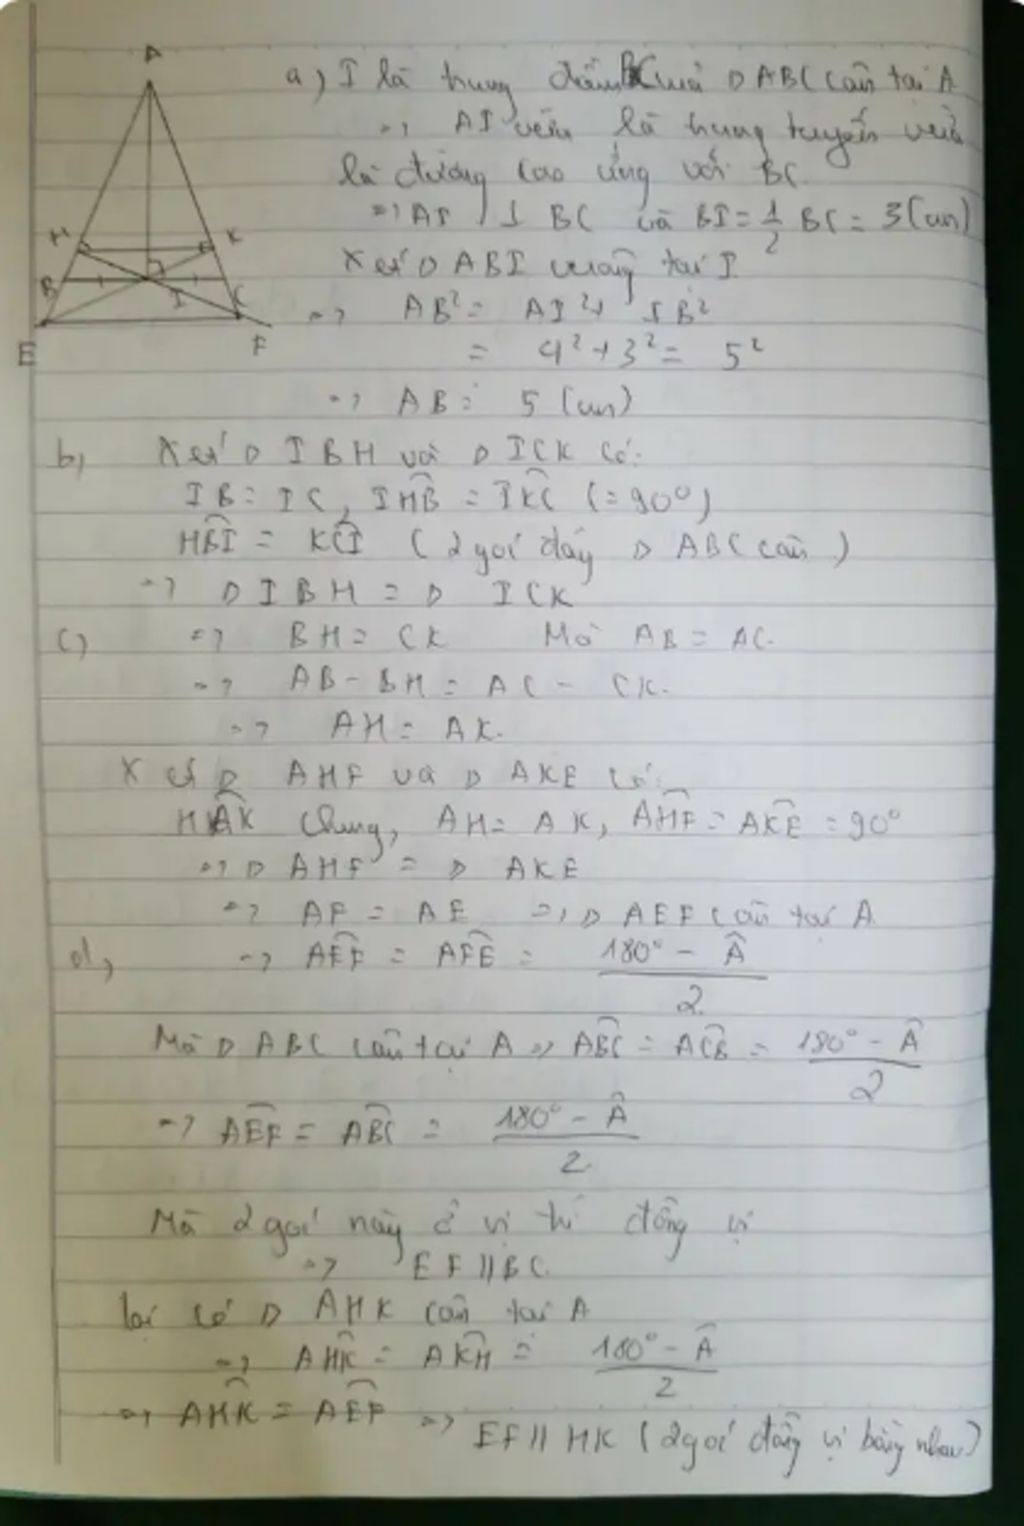 A
H
K
B
I
C
E
F
a) I là trung điểm BC của Δ ABC cân tại A
=> AI vừa là trung tuyến vừa
là đường cao ứng với BC
=> AI ⊥ BC và BI = 1/2 BC = 3(cm)
Xét Δ ABI vuông tại I
=> AB² = AI² + IB²
= 4² + 3² = 5²
=> AB = 5 (cm)
b) Xét Δ IBH và Δ ICK có:
IB = IC, IHB̂ = IKĈ (= 90°)
HBÎ = KCÎ (2 goí đáy Δ ABC cân)
=> Δ IBH = Δ ICK
c) => BH = CK Mà AB = AC.
=> AB - BH = AC - CK.
=> AH = AK.
Xét Δ AHF và Δ AKE có:
HAK̂ chung, AH = AK, AHF̂ = AKÊ = 90°
=> Δ AHF = Δ AKE
=> AF = AE => Δ AEF cân tại A
d) => AEF̂ = AFÊ = (180° - Â)/2
Mà Δ ABC cân tại A => ABĈ = ACB̂ = (180° - Â)/2
=> AEF̂ = ABĈ = (180° - Â)/2
Mà 2 goí này ở vị trí đồng vị
=> EF // BC.
lại có Δ AHK cân tại A
=> AHK̂ = AKĤ = (180° - Â)/2
=> AHK̂ = AEF̂ => EF // HK (2 goí đồng vị bằng nhau)